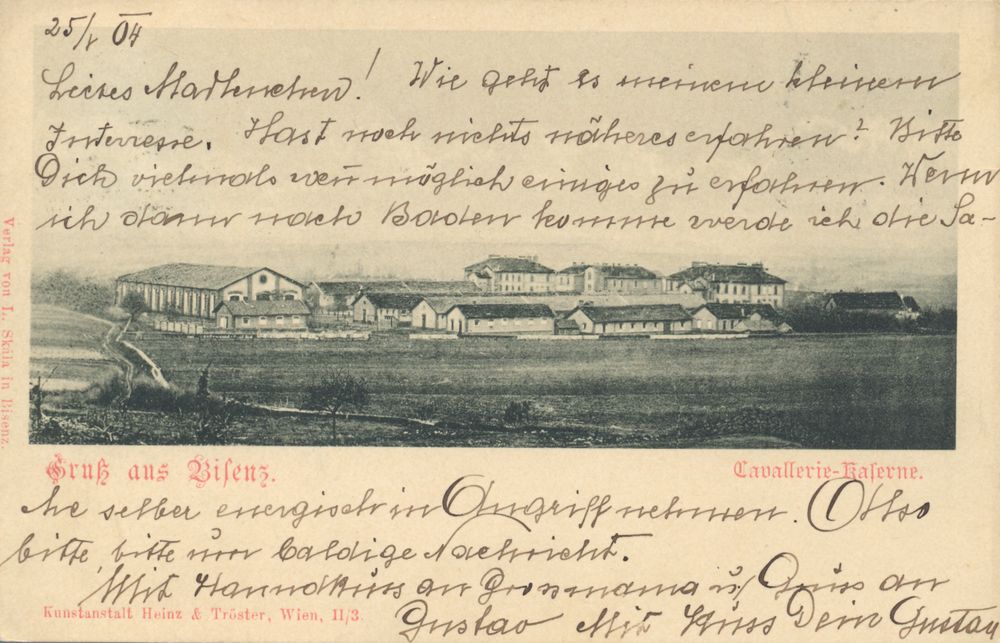 25/V 04
Liebes Madlenchen! Wie geht es meinem kleinem
Interesse. Hast noch nichts näheres erfahren? Bitte
Dich vielmals weñ möglich einiges zu erfahren. Wenn
ich dann nach Baden komme werde ich die Sa-
Verlag von L. Skála in Bisenz.
Gruß aus Bisenz.
Cavallerie-Kaserne.
che selber energisch in Angriff nehmen. Also
bitte, bitte um baldige Nachricht.
Mit Handkuss an Grossmama u/ Gruss an
Kunstanstalt Heinz & Tröster, Wien, II/3.
Gustav Mit Kuss Dein Gustav